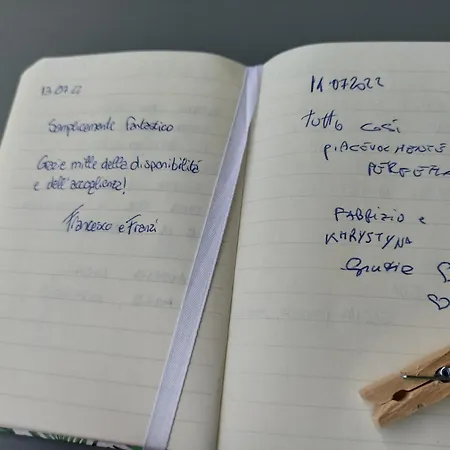 13.07.22
Semplicemente Fantastico
Grazie mille della disponibilità
e dell'accoglienza!
Francesco e Franzi
14.072022
Tutto così
PIACEVOLMENTE
Fabbrizio e
KHRYSTYNA
Grazie